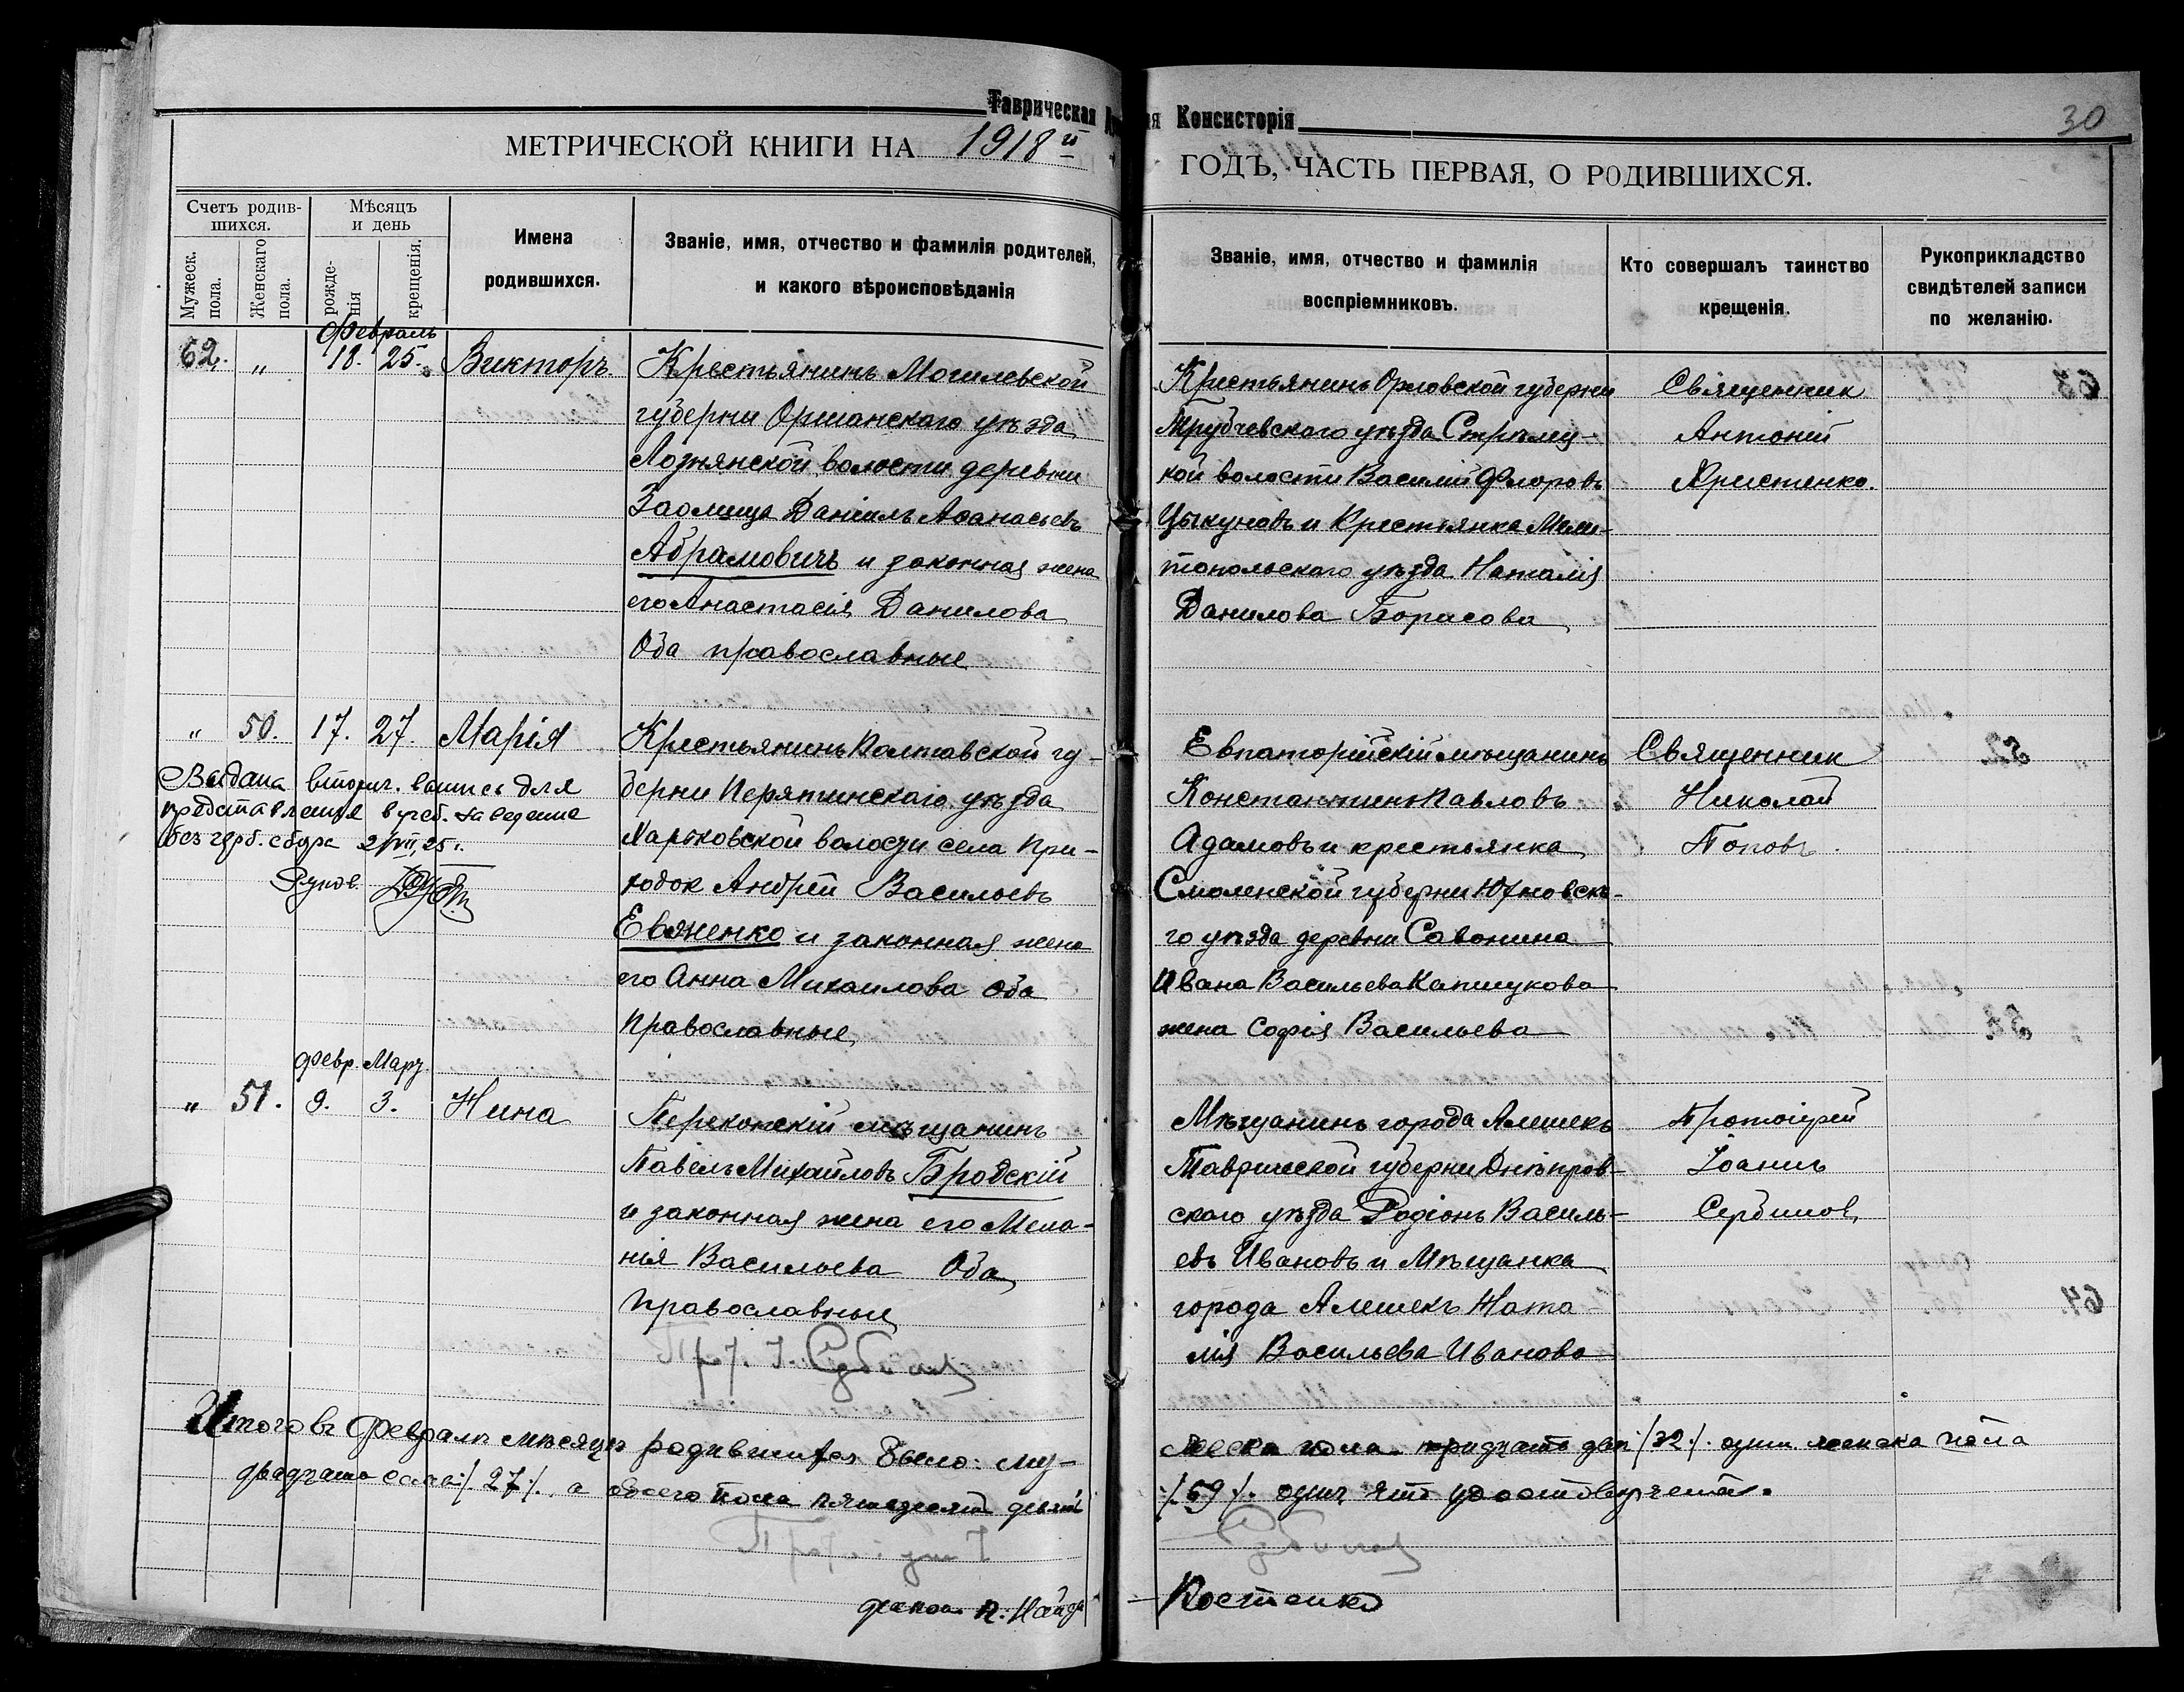 Таврическая
я Консисторія
30
МЕТРИЧЕСКОЙ КНИГИ НА 1918й
ГОДЪ, ЧАСТЬ ПЕРВАЯ, О РОДИВШИХСЯ.
Счетъ родив-
шихся.
Мужеск.
пола.
Женскаго
пола.
Мѣсяцъ
и день
рожде-
нія
крещенія.
Имена
родившихся.
Званіе, имя, отчество и фамилія родителей,
и какого вѣроисповѣданія
Званіе, имя, отчество и фамилія
воспріемниковъ.
Кто совершалъ таинство
крещенія.
Рукоприкладство
свидѣтелей записи
по желанію.
Февраль
62. " 18. 25. Викторъ.
Крестьянинъ Могилевской
губерни Оршанскаго уѣзда
Лознянской волости деревни
Заолица Даніилъ Аѳанасьевъ
Абрамовичъ и законная жена
его Анастасія Данилова
Оба православные
Крестьянинъ Орловской губерни
Трубчевского уѣзда Стрѣлец-
кой волости Василій Флоровъ
Цыкуновъ и Крестьянка Мели-
топольского уѣзда Наталія
Данилова Борисова
Священник
Антоній
Христенко.
" 50. 17. 27. Марія
Выдана вторич. выпись для
представления в учеб. заведение
без герб. сбора 2/VII, 25 г.
Крестьянинъ Полтавской гу-
берни Пирятинскаго уѣзда
Харьковской волости села При-
ходок Андрей Васильевъ
Евяненко и законная жена
его Анна Михаилова оба
православные
Евпаторійскій мѣщанинъ
Константинъ Павловъ
Адамовъ и крестьянка
Смоленской губерни Юхновска-
го уѣзда деревни Савонина
Ивана Васильева Капшукова
жена Софія Васильева
Священник
Николай
Поповъ.
февр. Март.
" 51. 9. 3. Нина
Перекопскій мѣщанинъ
Павелъ Михайловъ Бродскій
и законная жена его Мела-
нія Васильева Оба
православные
Мѣщанинъ города Алешекъ
Таврической губерни Днѣпров-
скаго уѣзда Родіонъ Василь-
евъ Ивановъ и Мѣщанка
города Алешекъ Ната-
лія Васильева Иванова
Протоіерей
Іоаннъ
Сербинов
Прот. І. Сербинов
Итого въ Февралѣ мѣсяцѣ родившихся было: муж-
ска пола тридцать два /32/ души женска пола
двадцать семь /.27/. а обоего пола пятьдесят девять
/.59/. душъ что удостовѣряемъ.
Сербинов
Костенко